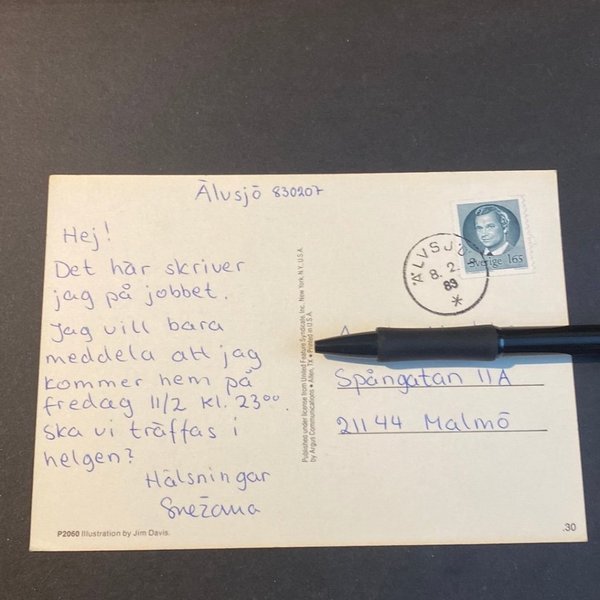 Älvsjö 830207
Hej!
Det här skriver
jag på jobbet.
Jag vill bara
meddela att jag
kommer hem på
fredag 11/2 kl. 23⁰⁰.
ska vi träffas i
helgen?
Hälsningar
Snežana
P2060 Illustration by Jim Davis.
Published under license from United Feature Syndicate, Inc., New York, N.Y., U.S.A.
by Argus Communications • Allen, TX • Printed in U.S.A.
Sverige 165
ÄLVSJÖ
8. 2.
83
Spångatan 11A
211 44 Malmö
.30